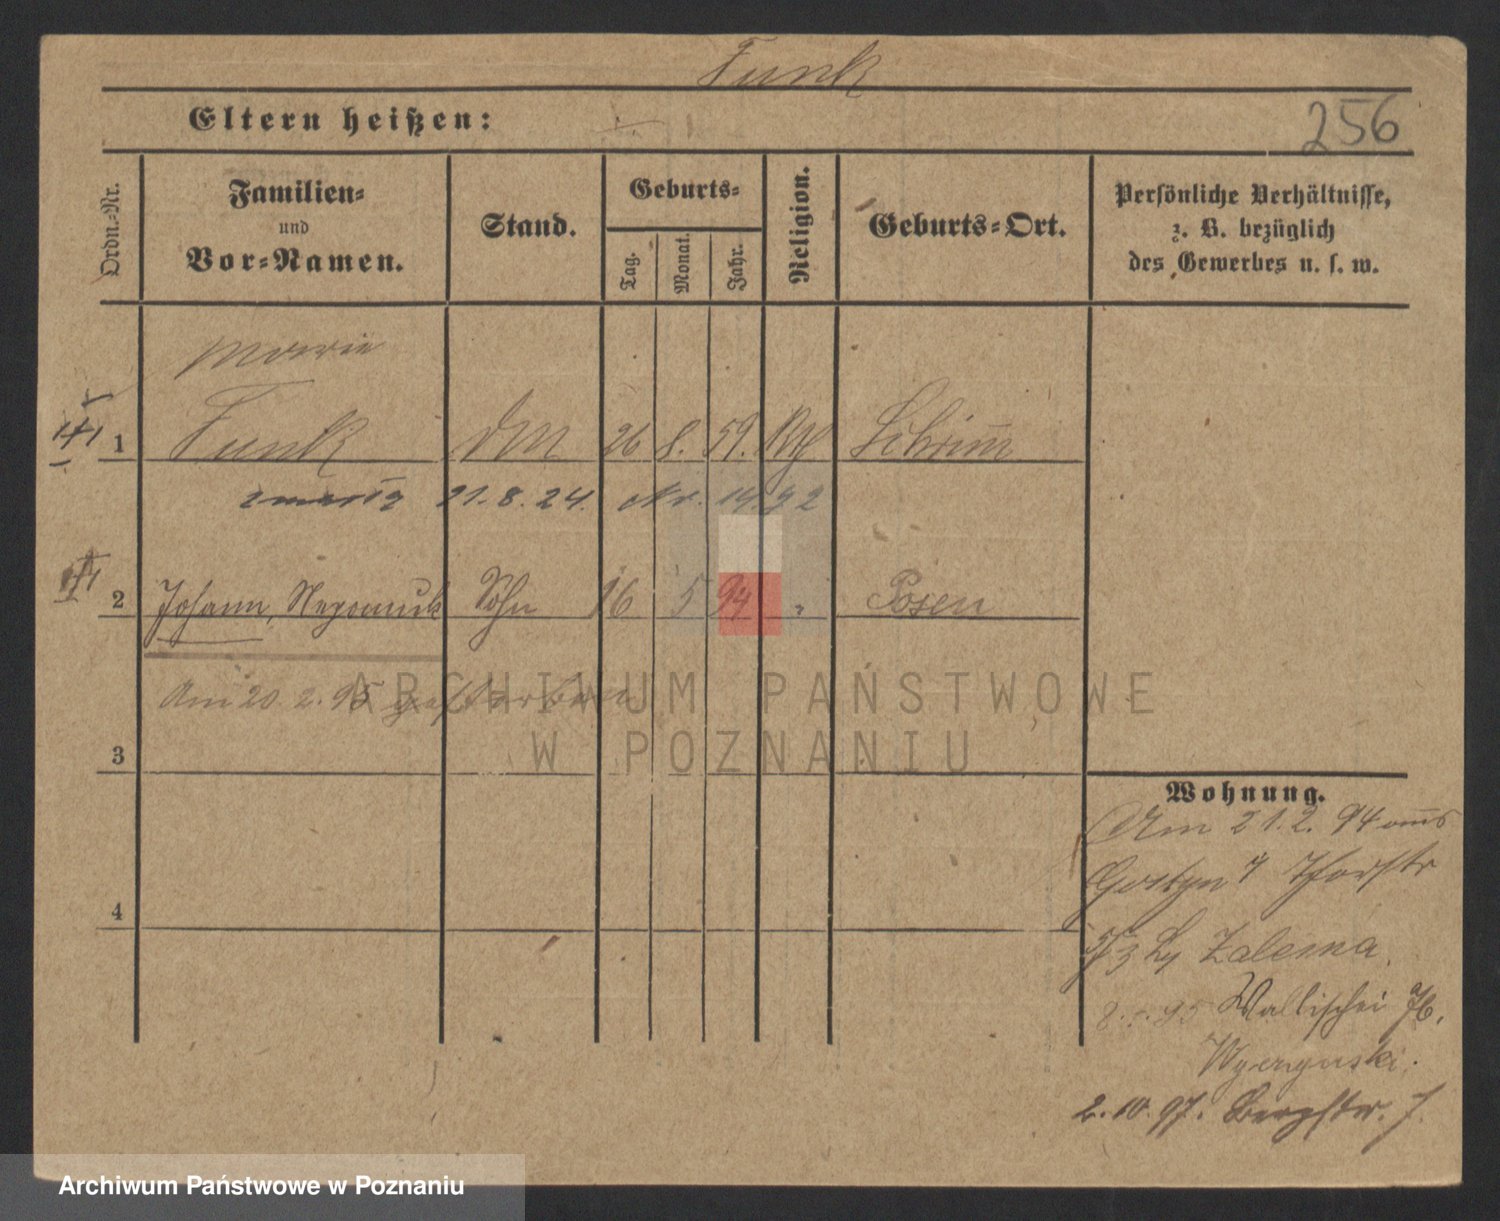 Funk
Eltern heißen:
256
Ordn.-Nr.
Familien-
und
Vor-Namen.
Stand.
Geburts-
Tag.
Monat.
Jahr.
Religion.
Geburts-Ort.
Persönliche Verhältnisse,
z. B. bezüglich
des Gewerbes u. s. w.
Marie
1 Funk 26 8. 59. Schrimm
21. 8. 24. Nr.
2 Johann, Nepomuk Sohn 16 5 94 " Posen
Am 20. 2. 95 gestorben
3
4
Wohnung.
Am 21. 2. 94 aus
Gostyn
Zalewna
95 Wallischei
2. 10. 97. Bergstr. 7.
ARCHIWUM PAŃSTWOWE
W POZNANIU
Archiwum Państwowe w Poznaniu